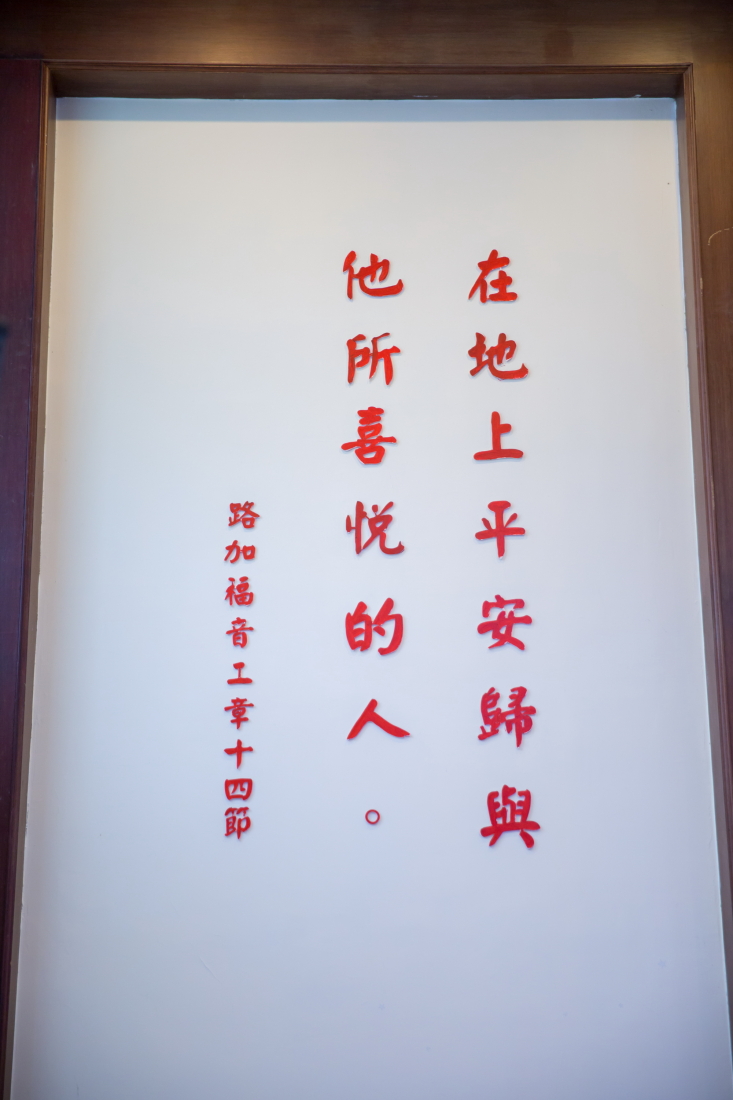 在地上平安歸與
他所喜悅的人。
路加福音工章十四節